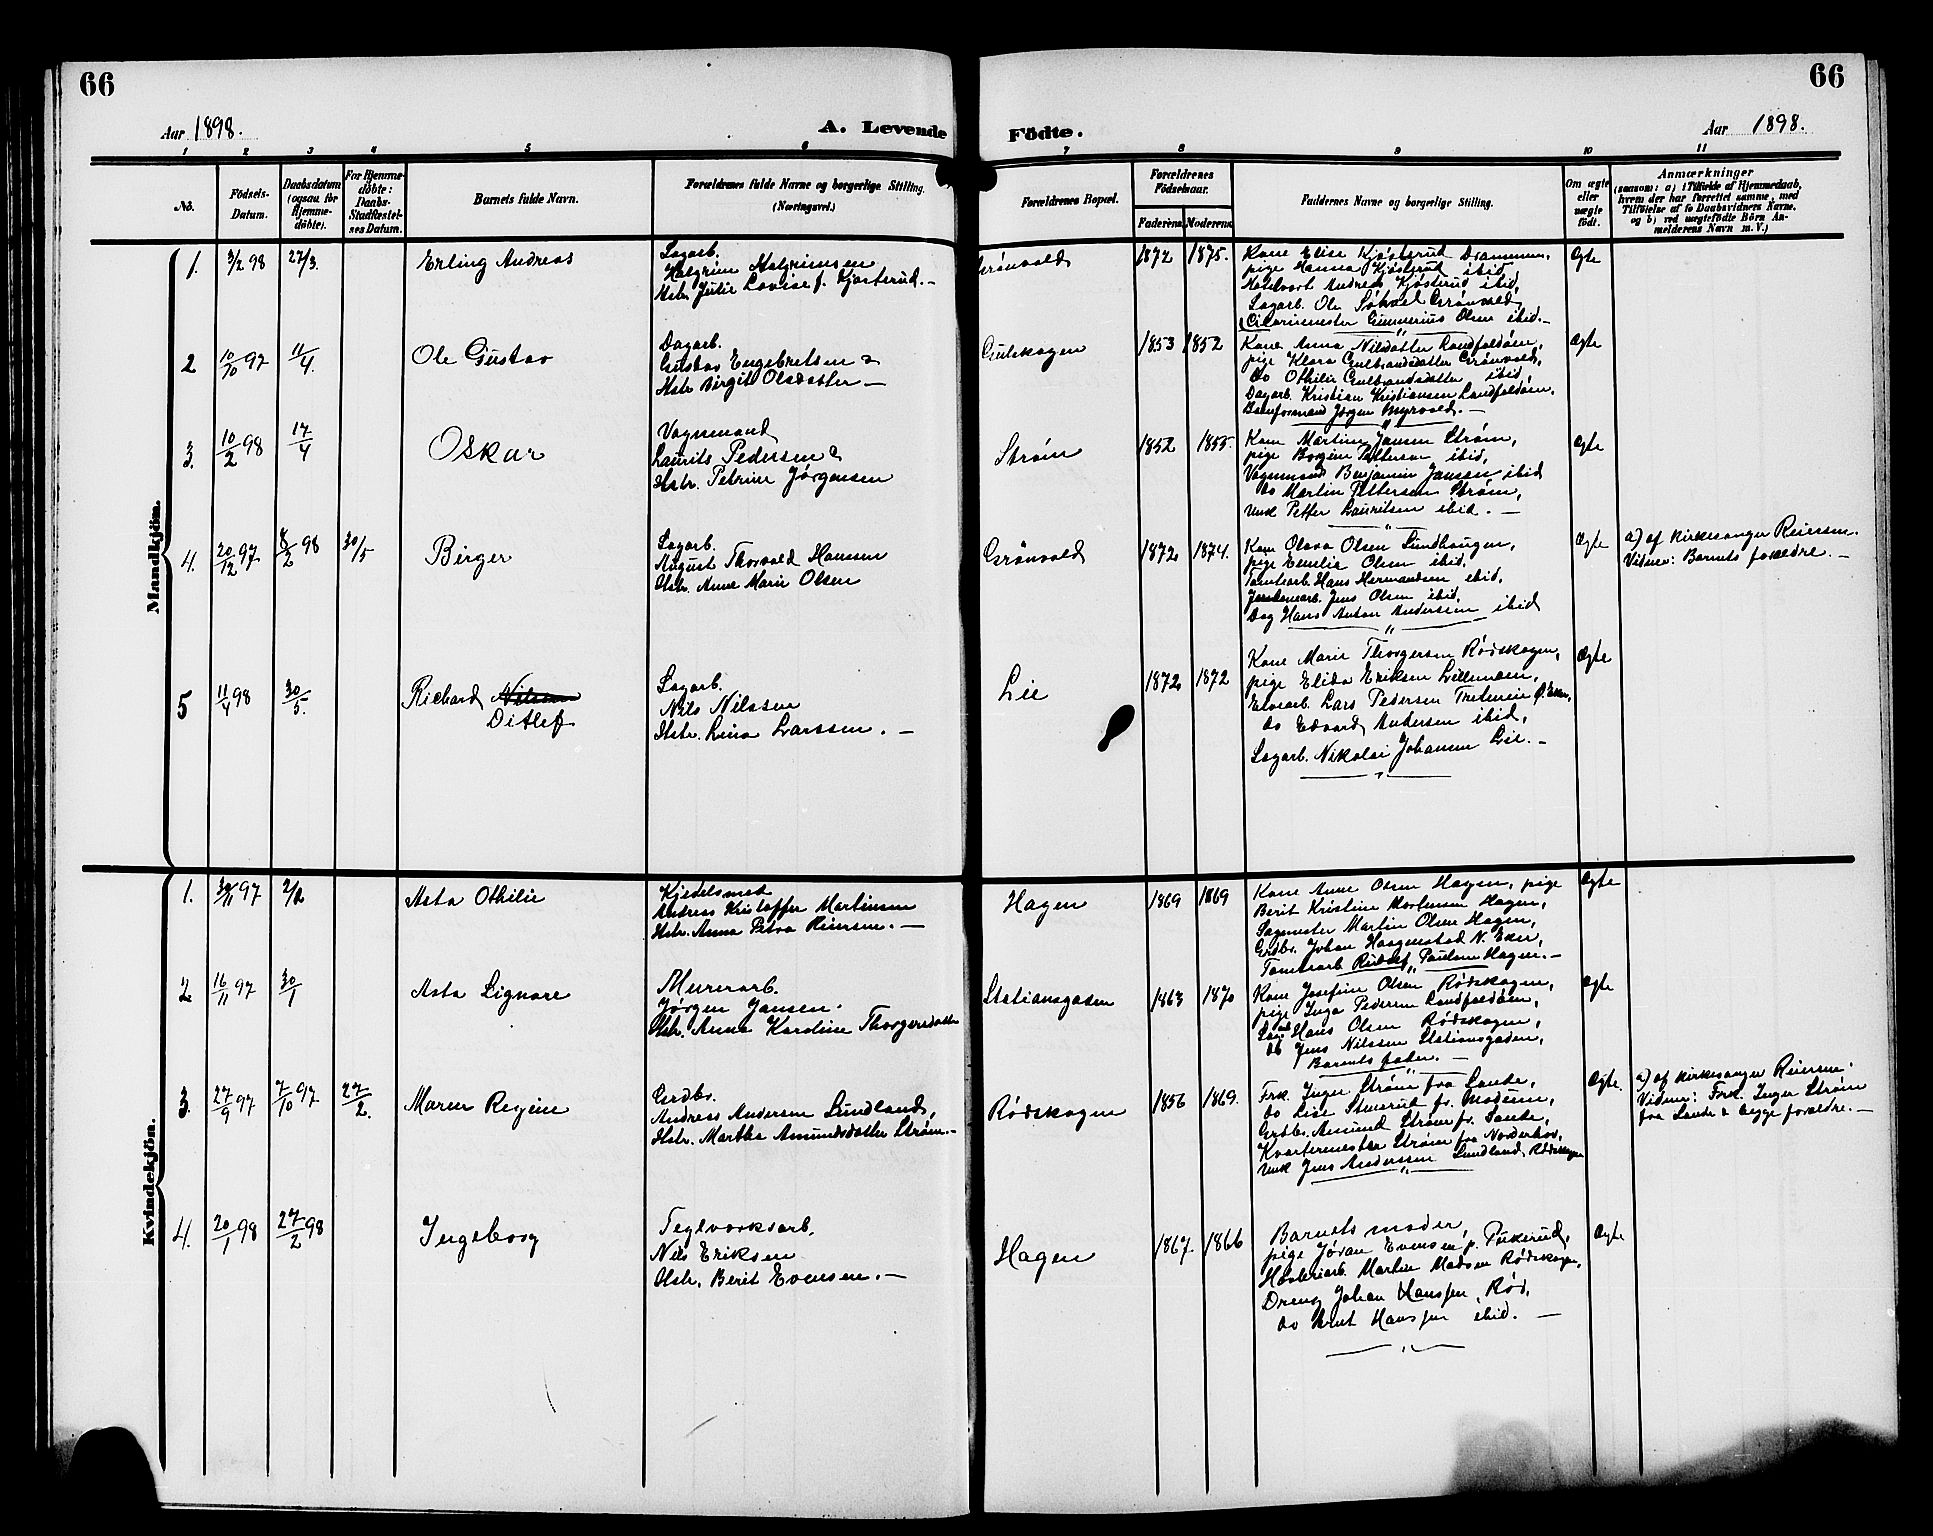 66
66
Aar 1898.
A. Levende Födte.
Aar 1898.
1 2 3 4 5 6 7 8 9 10 11
No.
Födsels-Datum.
Daabsdatum (ogsaa for Hjemmedöbte).
For Hjemmedöbte: Daabs-Stadfæstelses Datum.
Barnets fulde Navn.
Forældrenes fulde Navne og borgerlige Stilling. (Næringsvei.)
Forældrenes Bopæl.
Forældrenes Födselsaar.
Faderens Moderens
Faddernes Navne og borgerlige Stilling.
Om ægte eller uægte födt.
Anmærkninger
(saasom: a) i Tilfælde af Hjemmedaab, hvem der har forrettet samme, med Tilföielse af to Daabsvidners Navne, og b) ved uægtefödte Börn Anmelderens Navn m. V.)
Mandkjön.
1. 3/2 98 27/3. Erling Andreas
Sagarb.
Halgrim Halgrimsen
Hstr. Julie Lovise f. Kjøsterud. —
Grønvold 1872 1875.
Kone Elise Kjøsterud Drammen,
pige Hanna Kjøsterud ibid,
Hotelvært Andreas Kjøsterud ibid,
Sagarb. Ole Grønvold,
Gunnerius Olsen ibid. —
Ægte
2 10/10 97 11/4. Ole Gustav
Dagarb.
Gustav Engebretsen &
Hstr. Birgit Olsdatter —
Gulskogen 1853 1852
Kone Anna Nilsdatter Landfaldøen,
pige Klara Gulbrandsdatter Grønvold,
do Othilie Gulbrandsdatter ibid,
Dagarb. Kristian Kristiansen Landfaldøen.
Baneformand Jørgen Myrvold. —
Ægte
3. 10/2 98 17/4 Oskar
Vognmand
Laurits Pedersen &
Hstr. Petrine Jørgensen
Strøm 1852 1855.
Kone Martine Jansen Strøm,
pige Borgine Pettersen ibid,
Vognmand Benjamin Jansen, ibid
do Martin Pettersen Strøm,
Unk Petter Lauritsen ibid. —
Ægte
4. 20/12 97 8/2 98 30/5 Birger
Sagarb.
August Thorvald Hansen
Hstr. Anne Marie Olsen
Grønvold 1872 1874.
Kone Olava Olsen Sundhaugen,
pige Emilie Olsen ibid,
Tomtearb. Hans Hermandsen ibid,
Jens Olsen ibid.
Dag Hans Anton Anderssen ibid
Ægte
a) af Kirkesanger Reiersen.
Vidner: Barnets forældre. —
5 11/4 98 30/5. Richard Nilsen
Ditlef
Sagarb.
Nils Nilssen
Hstr. Lina Larssen. —
Lie 1872 1872
Kone Marie Thorgersen Rødskogen,
pige Elida Eriksen Lillemoen,
Elvearb. Lars Pedersen Ø. Eker,
do Edvard Andersen ibid,
Sagarb. Nikolai Johansen Lie. —
Ægte
Kvindekjön.
1. 30/11 97 2/2 Asta Othilie
Kjedelsmed
Andreas Kristoffer Martinsen
Hstr. Anna Petra Reiersen. —
Hagen 1869 1869
Kone Anne Olsen Hagen, pige
Berit Kristine Mortensen Hagen,
Sagmester Martin Olsen Hagen,
Grdbr. Johan Haagenstad N. Eker,
Tomtearb Rudolf Paulsen Hagen. —
Ægte
2 16/11 97 30/1 Asta Lignore
Murerarb.
Jørgen Jansen.
Hstr. Anna Karoline Thorgersdatter
Stationsgaden 1863 1870
Kone Josefine Olsen Rødskogen,
pige Inga Pedersen Landfaldøen,
Hans Olsen Rødskogen,
do Jens Nilssen Stationsgaden,
Barnets fader. —
Ægte
3. 27/9 97 7/10 97 27/2. Maren Regine
Grdbr.
Andreas Andersen Sundland,
Hstr. Marthe Amundsdatter Strøm. —
Rødskogen 1856 1869.
Frk. Inger Strøm fra Sande,
do Lise Stensrud fr. Modum,
Grdbr. Amund Strøm fr. Sande,
Kvartermester Strøm fra Norderhov,
Unk Jens Anderssen Sundland, Rødskogen
Ægte.
a) af Kirkesanger Reiersen.
Vidner: Frk. Inger Strøm
fra Sande & begge forældre. —
4. 20/1 98 27/2 98 Ingeborg
Teglværksarb.
Nils Eriksen
Hstr. Berit Evensen. —
Hagen 1867. 1866
Barnets moder,
pige Jøran Evensen p. Pukerud,
Høvleriarb. Martin Madsen Rødskogen,
Dreng Johan Hanssen, Rød,
do Knut Hanssen ibid. —
Ægte